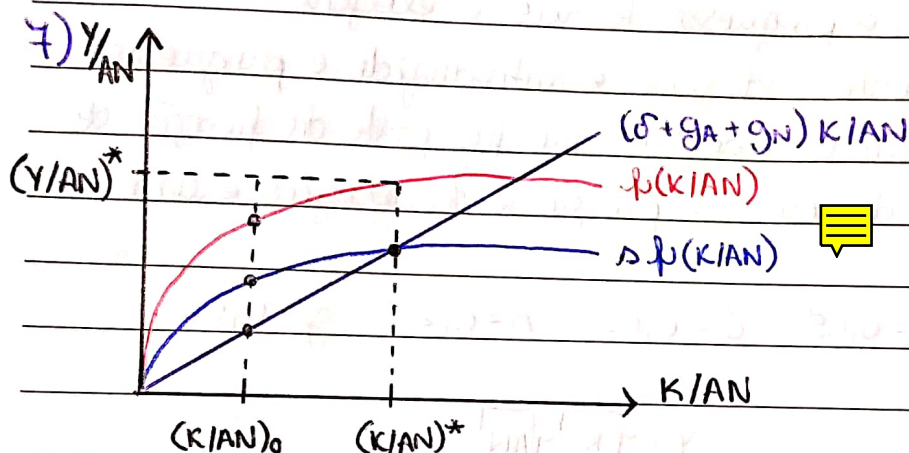 7) Y/AN
(δ+gA+gN) K/AN
(Y/AN)*
f(K/AN)
s f(K/AN)
K/AN
(K/AN)0
(K/AN)*